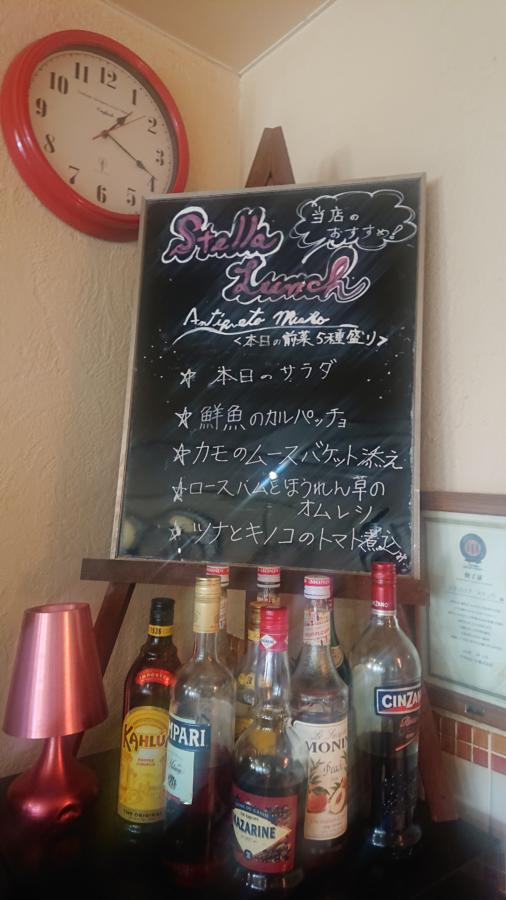 12
1
2
3
4
5
6
7
8
9
10
11
当店の
おすすめ!
Stella
Lunch
Antipasto Misto
<本日の前菜5種盛り>
☆ 本日のサラダ
☆ 鮮魚のカルパッチョ
☆ カモのムースバケット添え
☆ ロースハムとほうれん草の
オムレツ
☆ ツナとキノコのトマト煮込み
1936
IMPORTED
KAHLÚA
THE ORIGINAL
MPARI
MAZARINE
MONIN
MONIN
MONIN
Peach
CINZANO
CINZAN